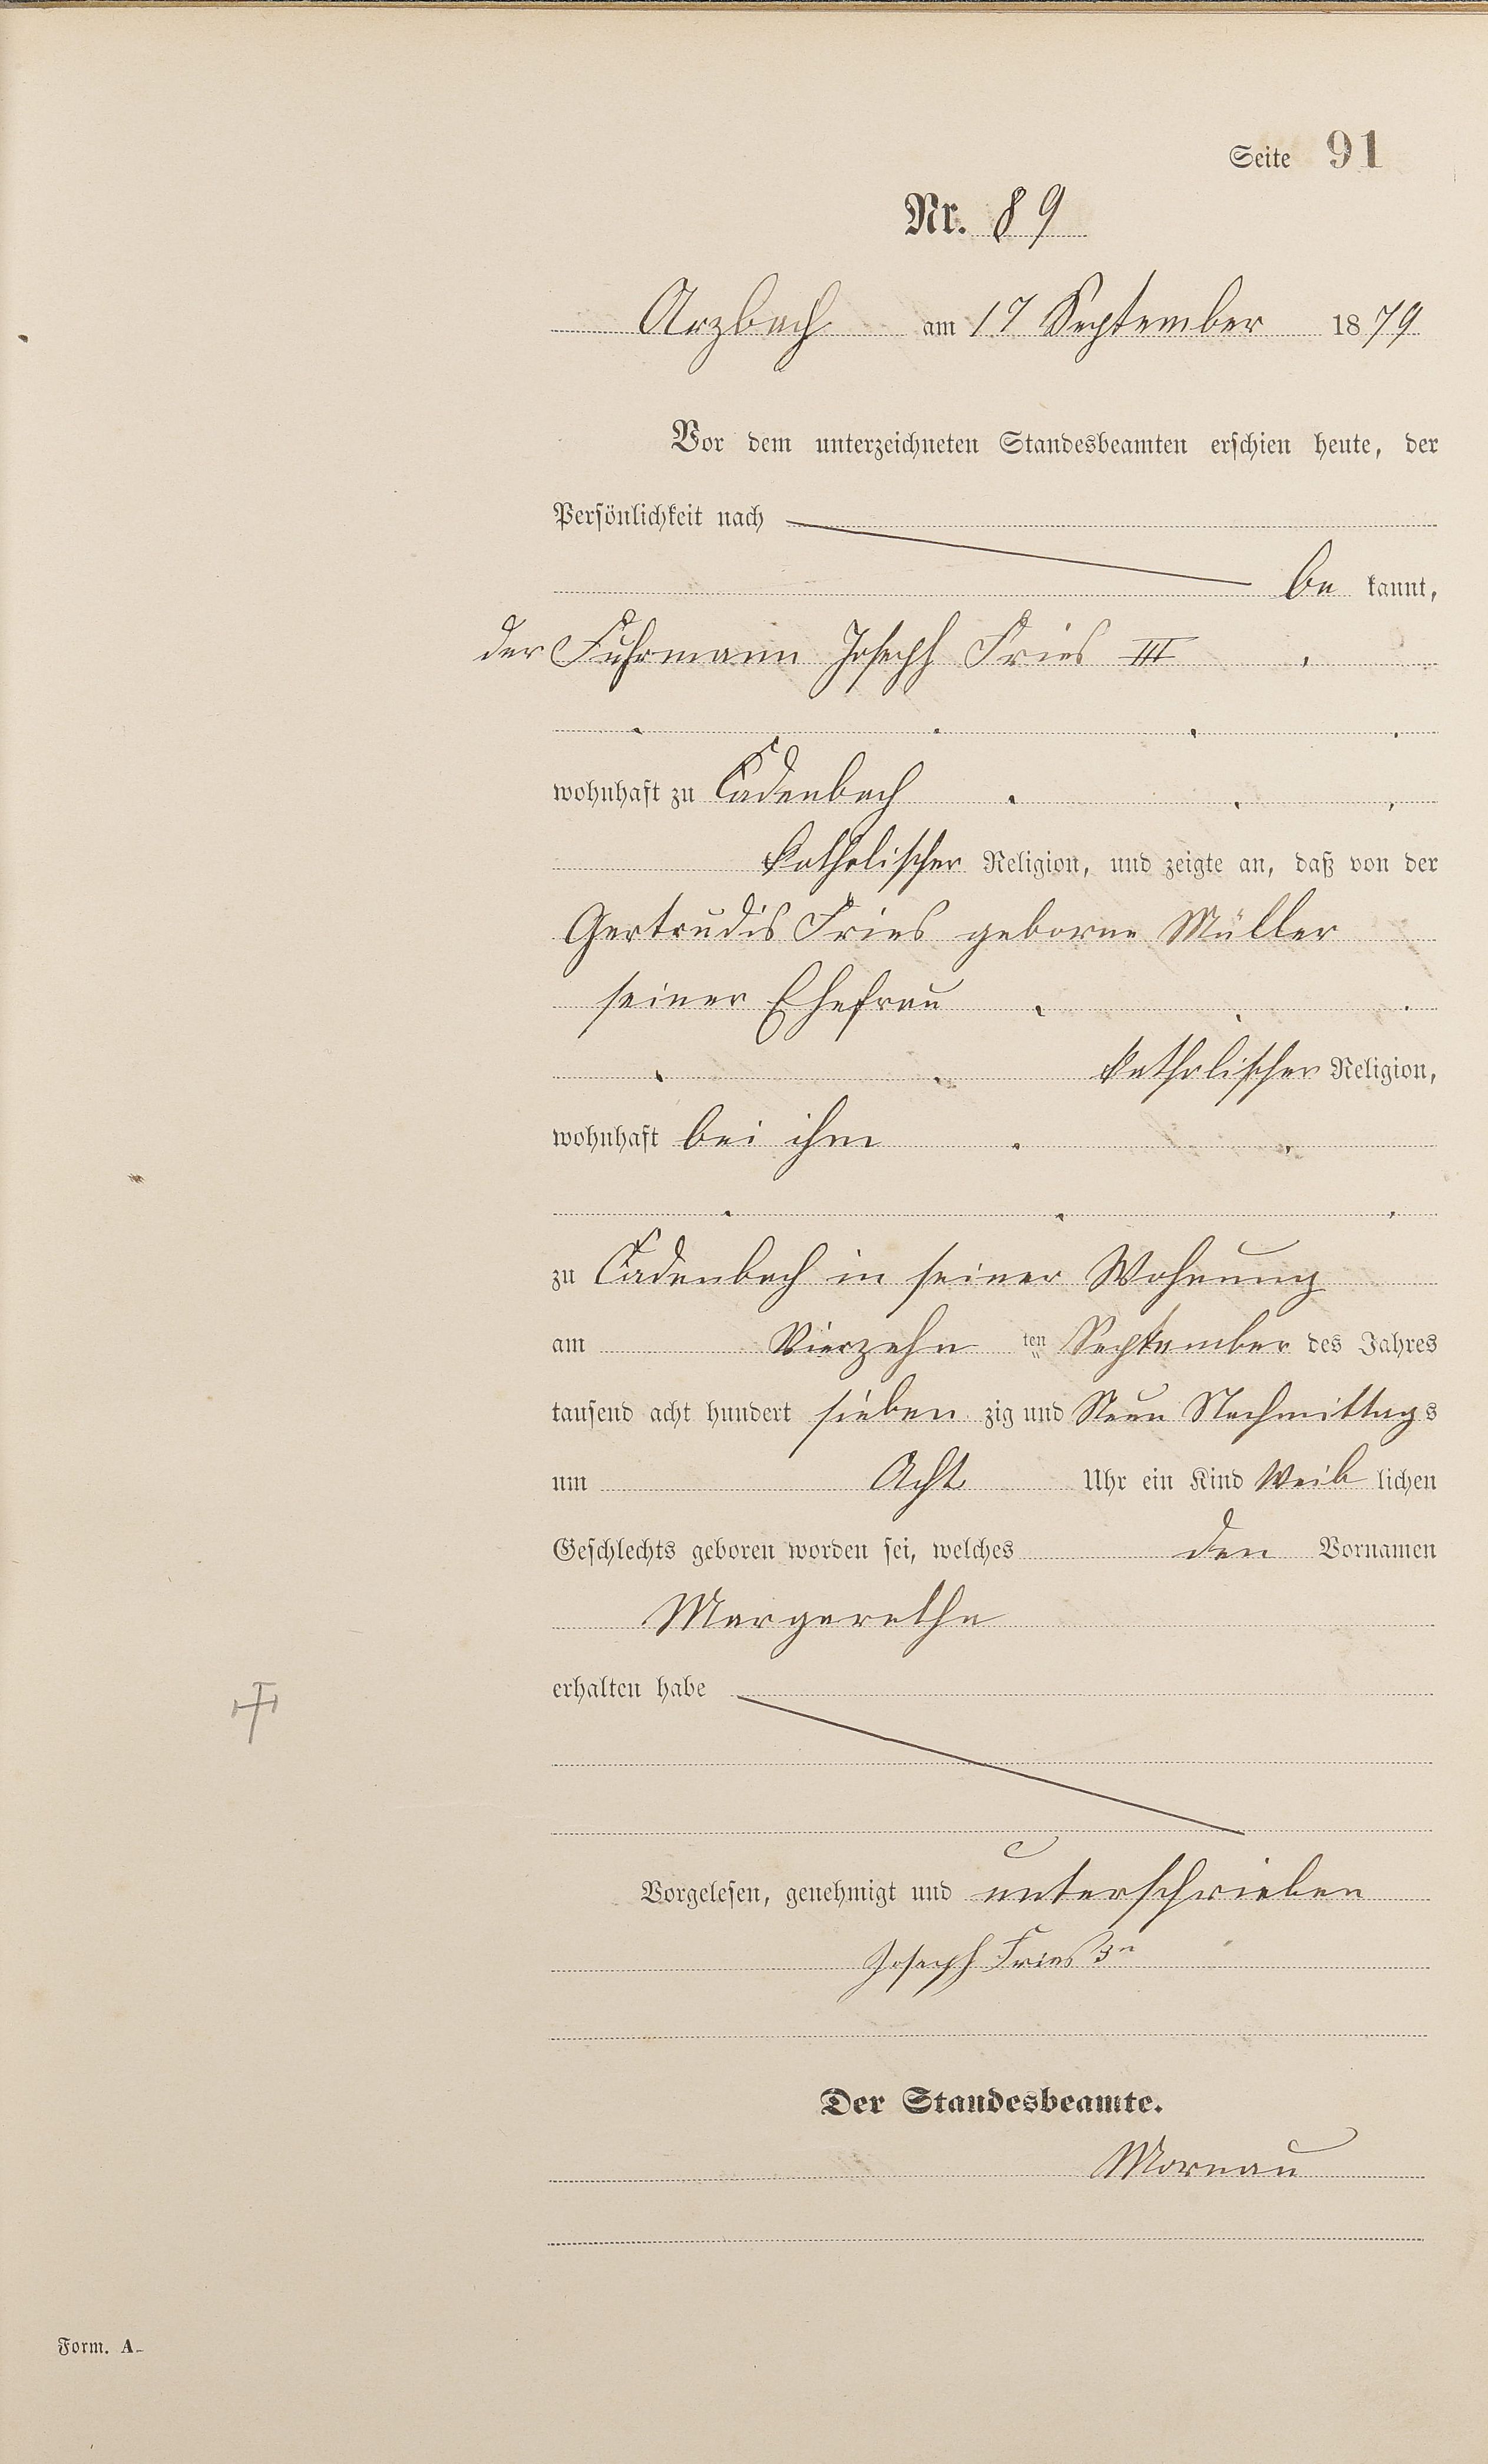 Seite 91
Nr. 89
Arzbach am 17 September 1879
Vor dem unterzeichneten Standesbeamten erschien heute, der
Persönlichkeit nach
be kannt,
der Fuhrmann Joseph Fries III
wohnhaft zu Cadenbach
katholischer Religion, und zeigte an, daß von der
Gertrudis Fries geborne Müller
seiner Ehefrau
katholischer Religion,
wohnhaft bei ihm
zu Cadenbach in seiner Wohnung
am Vierzehn ten September des Jahres
tausend acht hundert sieben zig und Neun Nachmittags
um Acht Uhr ein Kind Weib lichen
Geschlechts geboren worden sei, welches den Vornamen
Margarethe
erhalten habe
Vorgelesen, genehmigt und unterschrieben
Joseph Fries 3r
Der Standesbeamte.
Mornau
Form. A.